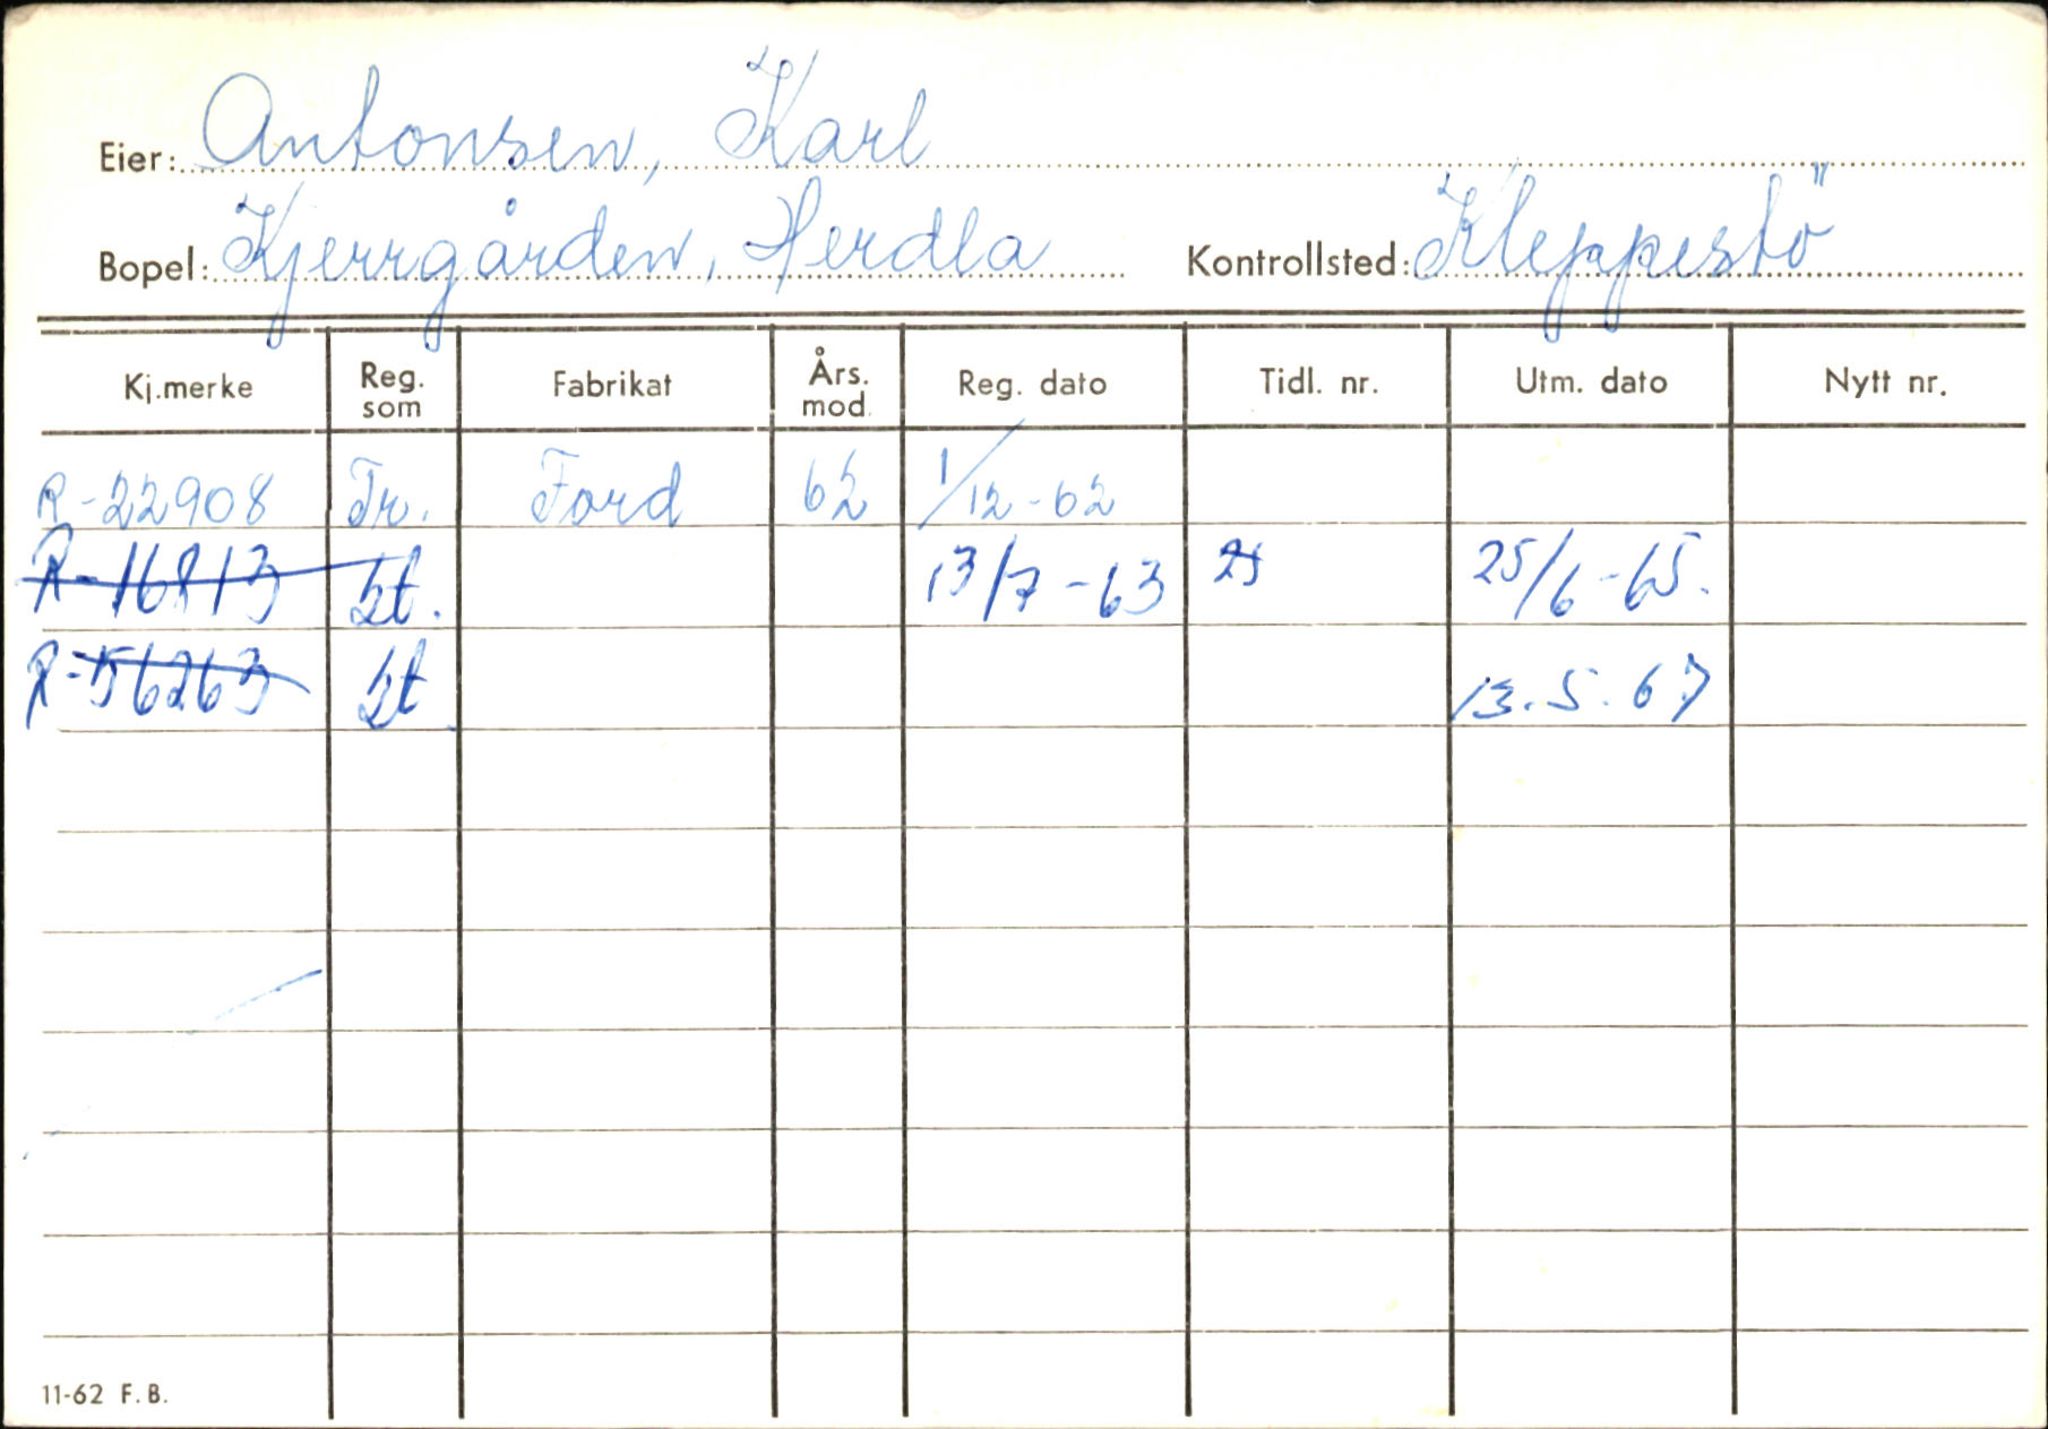 Eier: Antonsen, Karl
Bopel: Kjerrgården, Herdla Kontrollsted: Kleppestö
Kj.merke Reg. som Fabrikat Års. mod. Reg. dato Tidl. nr. Utm. dato Nytt nr.
R-22908 Tr. Ford 62 1/12-62
R-16813 St. 13/7-63 25/6-65.
R-56263 St 13.5.67
11-62 F.B.